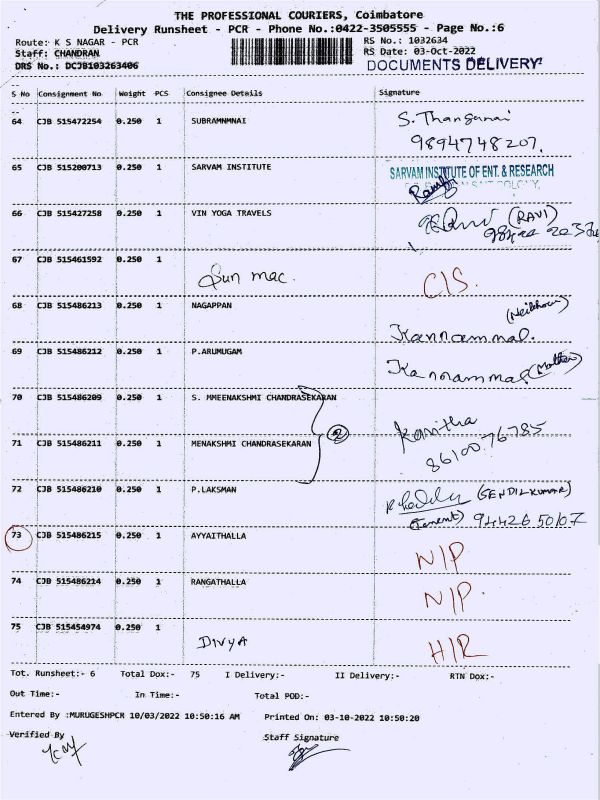 THE PROFESSIONAL COURIERS, Coimbatore
Delivery Runsheet - PCR - Phone No.:0422-3505555 - Page No.:6
Route: K S NAGAR - PCR RS No.: 1032634
Staff: CHANDRAN RS Date: 03-Oct-2022
DRS No.: DCJB103263406 DOCUMENTS DELIVERY
S No Consignment No Weight PCS Consignee Details Signature
64 CJB 515472254 0.250 1 SUBRAMNMNAI S. Thangamai
9894748207.
65 CJB 515200713 0.250 1 SARVAM INSTITUTE SARVAM INSTITUTE OF ENT. & RESEARCH
66 CJB 515427258 0.250 1 VIN YOGA TRAVELS (RAVI)
67 CJB 515461592 0.250 1 Sun mac. C/S.
68 CJB 515486213 0.250 1 NAGAPPAN Kannammal.
69 CJB 515486212 0.250 1 P.ARUMUGAM Kannammal (Mother)
70 CJB 515486209 0.250 1 S. MMEENAKSHMI CHANDRASEKARAN Kavitha
2
71 CJB 515486211 0.250 1 MENAKSHMI CHANDRASEKARAN 8610076785
72 CJB 515486210 0.250 1 P.LAKSMAN (SENDILKUMAR)
(Tenent) 94426 50107
73 CJB 515486215 0.250 1 AYYAITHALLA N/P
74 CJB 515486214 0.250 1 RANGATHALLA N/P.
75 CJB 515454974 0.250 1 DIVYA H/R
Tot. Runsheet:- 6 Total Dox:- 75 I Delivery:- II Delivery:- RTN Dox:-
Out Time:- In Time:- Total POD:-
Entered By :MURUGESHPCR 10/03/2022 10:50:16 AM Printed On: 03-10-2022 10:50:20
Verified By Staff Signature